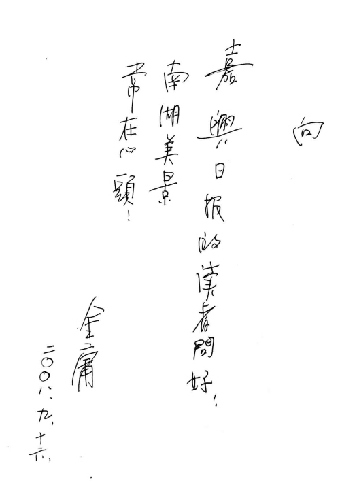 向
嘉興日报的读者問好！
南湖美景
常在心頭！
金庸
二〇〇八、九、十六、